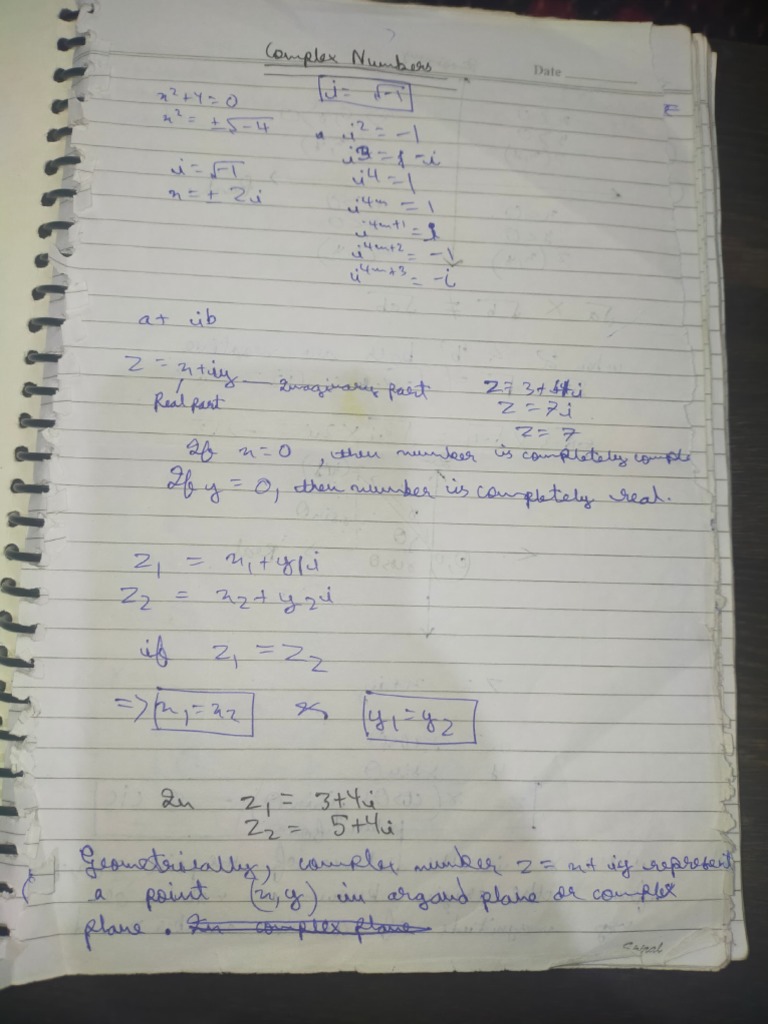 Complex Numbers
Date
x²+4=0
x² = ±√-4
i = √-1
x = ± 2i
i = √-1
i² = -1
i³ = -i
i⁴ = 1
i⁴ⁿ = 1
i⁴ⁿ⁺¹ = 1
i⁴ⁿ⁺² = -1
i⁴ⁿ⁺³ = -i
a+ ib
Z = x+iy Imaginary part
Real part
Z = 3+4i
Z = 7i
Z = 7
If x = 0, then number is completely comple
If y = 0, then number is completely real.
Z₁ = x₁+y₁i
Z₂ = x₂+y₂i
if Z₁ = Z₂
=> x₁ = x₂ & y₁ = y₂
In Z₁ = 3+4i
Z₂ = 5+4i
Geometrically, complex number Z = x+iy represent
a point (x,y) in argand plane or complex
plane. In complex plane